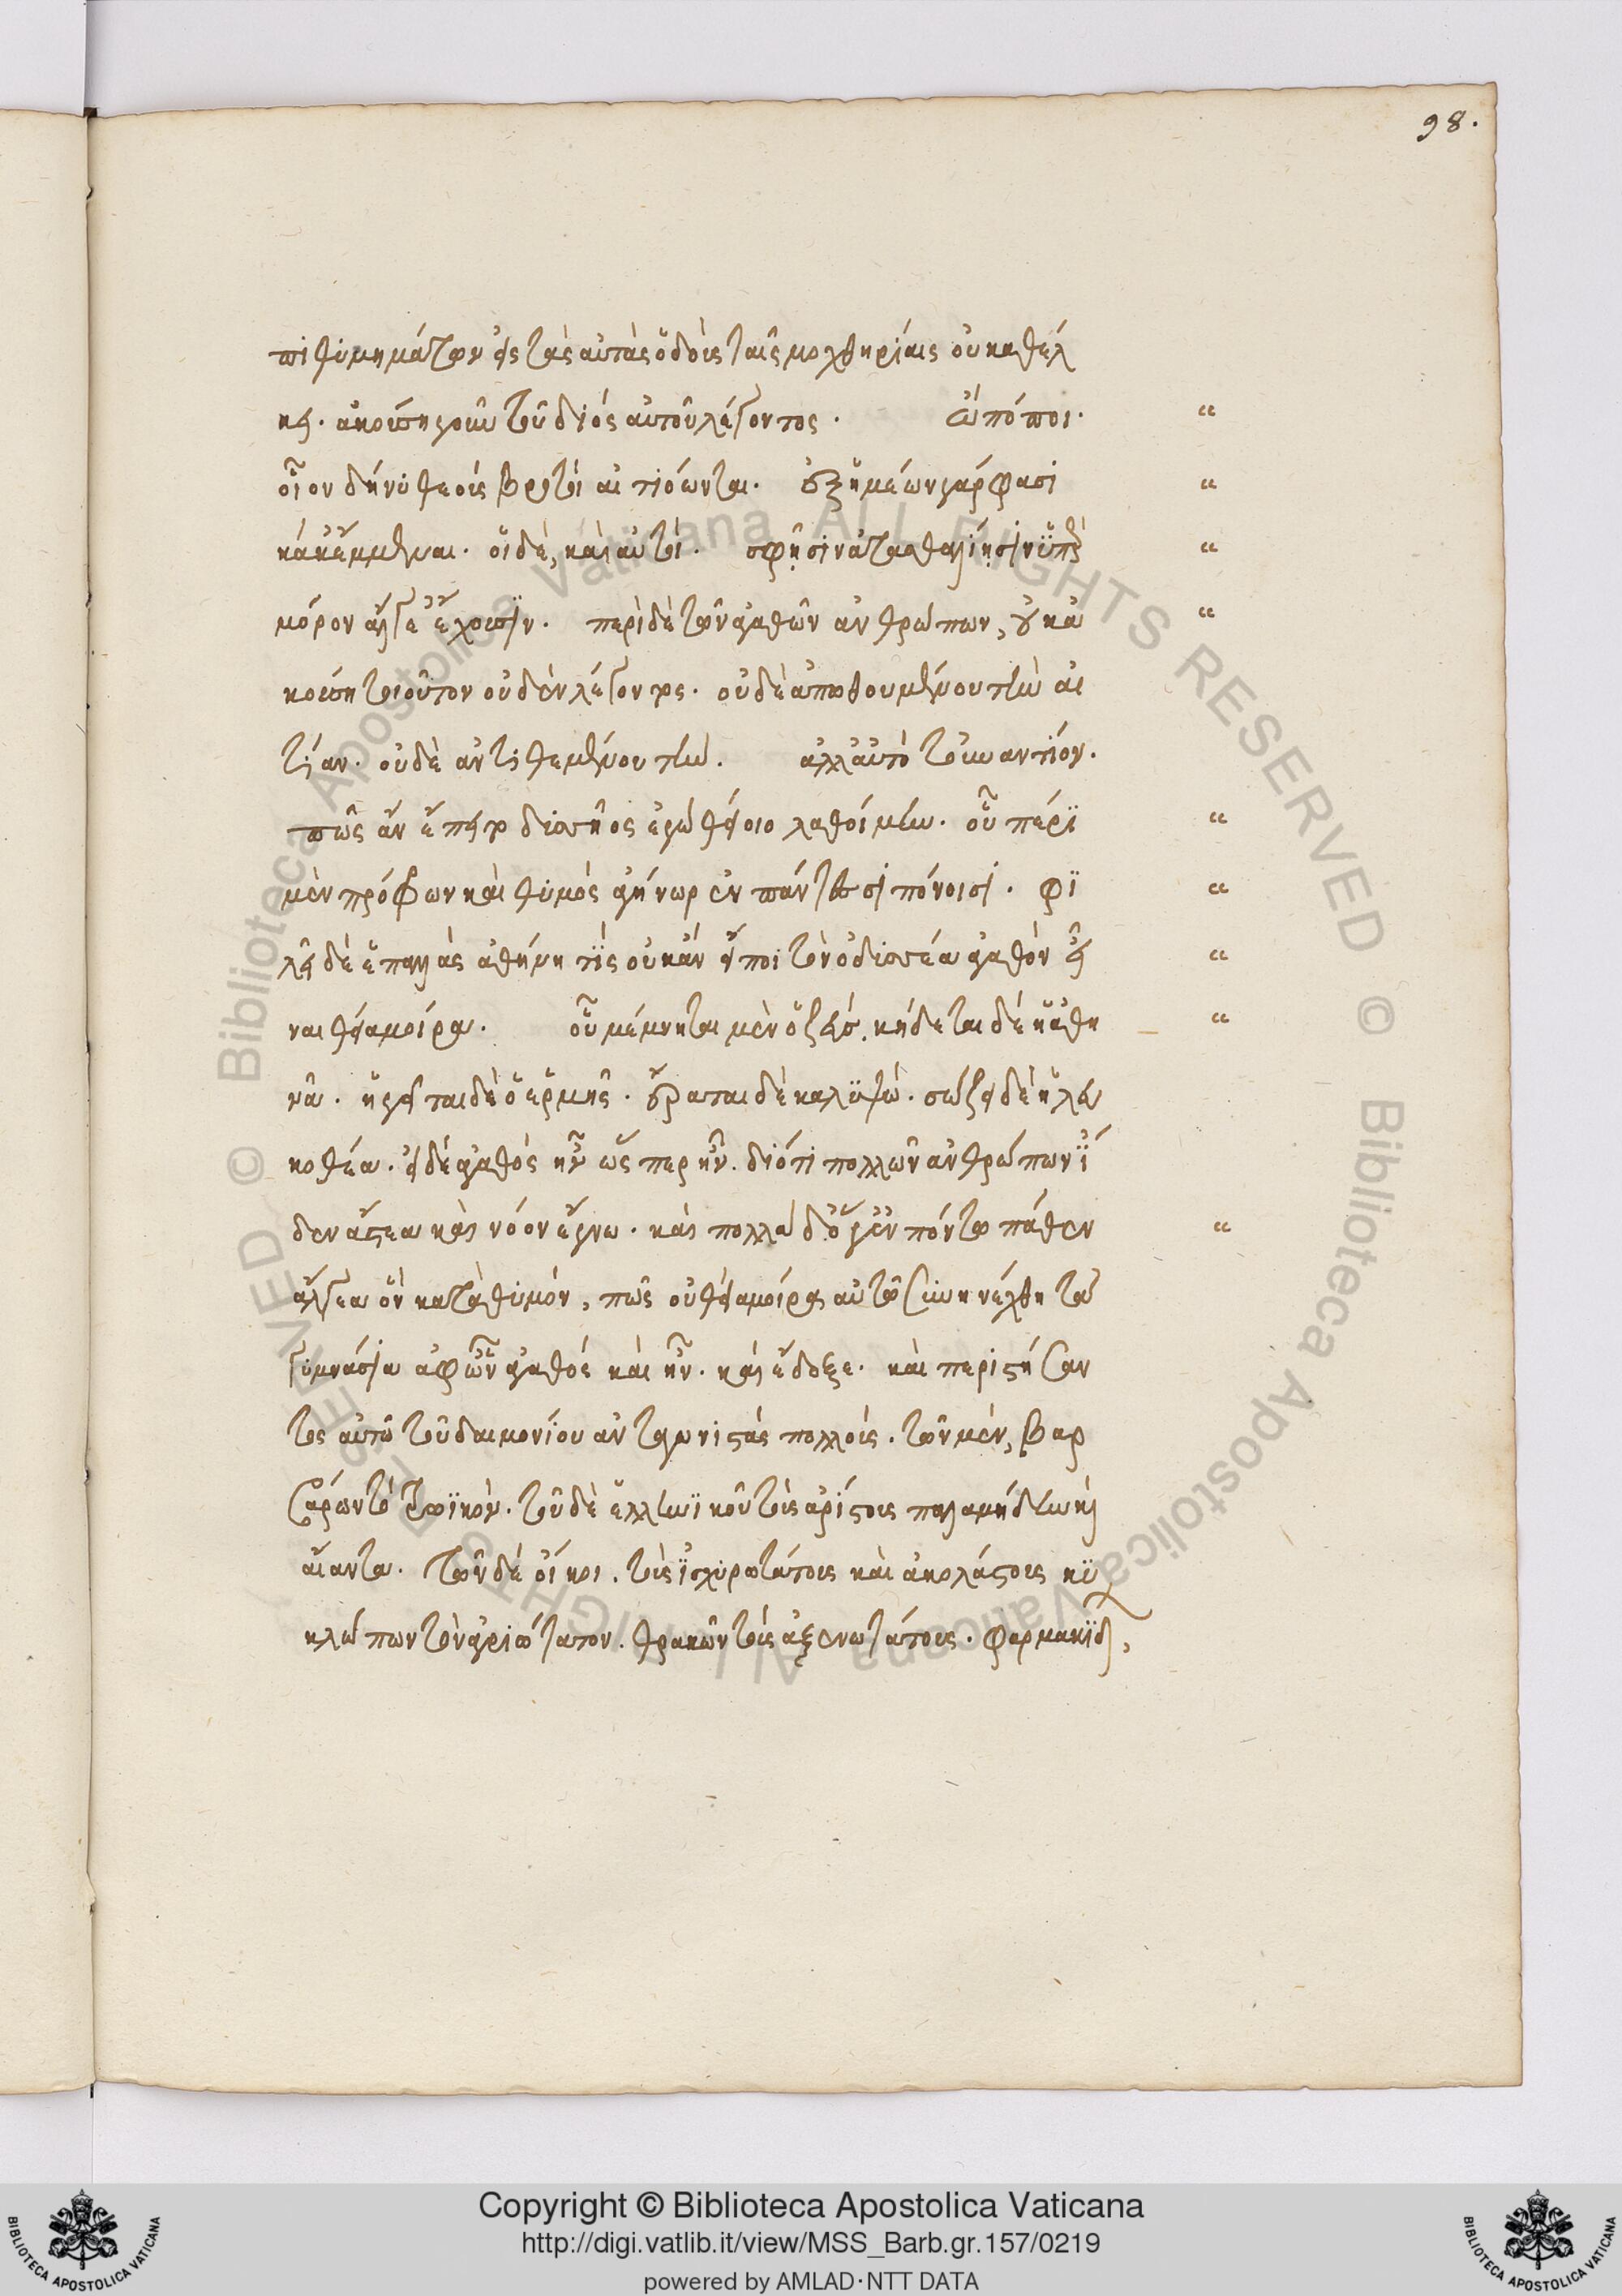 98.
πιθυμημάτων εἰς τὰς αὐτὰς ὁδοὺς ταῖς μοχθηρίαις οὐ καθέλ
κει. ἀκούσῃ γοῦν τοῦ διὸς αὐτοῦ λέγοντος. ὢ πόποι.
οἷον δή νυ θεοὺς βροτοὶ αἰτιόωνται. ἐξ ἡμέων γάρ φασι
κάκ' ἔμμεναι. οἱ δὲ, καὶ αὐτοὶ. σφῇσιν ἀτασθαλίῃσιν ὑπὲρ
μόρον ἄλγε' ἔχουσιν. περὶ δὲ τῶν ἀγαθῶν ἀνθρώπων, οὐκ ἀ
κούσῃ τοιοῦτον οὐδὲν λέγοντος. οὐδὲ ἀπωθουμένου τὴν αἰ
τίαν. οὐδὲ ἀντιθεμένου τὴν. ἀλλ' αὐτὸ τοὐναντίον.
πῶς ἂν ἔπειτ' ὀδυσῆος ἐγὼ θείοιο λαθοίμην. οὗ πέρι
μὲν πρόφρων καὶ θυμὸς ἀγήνωρ ἐν πάντεσσι πόνοισι. φι
λεῖ δέ ἑ παλλὰς ἀθήνη τίς οὐκ ἂν εἴποι τὸν ὀδυσσέα ἀγαθὸν εἶ
ναι θείᾳ μοίρᾳ. οὗ μέμνηται μὲν ὁ ζεύς. κήδεται δὲ ἡ ἀθη
νᾶ. ἡγεῖται δὲ ὁ ἑρμῆς. ἐρᾶται δὲ καλυψώ. σώζει δὲ ἡ λευ
κοθέα. εἰ δὲ ἀγαθὸς ἦν ὥσπερ ἦν. διότι πολλῶν ἀνθρώπων ἴ
δεν ἄστεα καὶ νόον ἔγνω. καὶ πολλὰ δ' ὅγ' ἐν πόντῳ πάθεν
ἄλγεα ὃν κατὰ θυμόν, πῶς οὐ θείᾳ μοίρᾳ αὐτῷ συνηνέχθη τὰ
γυμνάσια ἀφ' ὧν ἀγαθός καὶ ἦν. καὶ ἔδοξε. καὶ περιστήσαν
τος αὐτῷ τοῦ δαιμονίου ἀνταγωνιστὰς πολλούς. τῶν μὲν, βαρ
βάρων τὸ τρωϊκὸν. τοῦ δὲ ἑλληνικοῦ τοὺς ἀρίστους παλαμήδην καὶ
αἴαντα. τῶν δὲ οἴκοι. τοὺς ἰσχυροτάτους καὶ ἀκολάστους κυ
κλώπων τὸν ἀγριώτατον. θρακῶν τοὺς ἀξενωτάτους. φαρμακίδ,
Copyright © Biblioteca Apostolica Vaticana
http://digi.vatlib.it/view/MSS_Barb.gr.157/0219
powered by AMLAD·NTT DATA
BIBLIOTECA APOSTOLICA VATICANA
BIBLIOTECA APOSTOLICA VATICANA
© Biblioteca Apostolica Vaticana ALL RIGHTS RESERVED © Biblioteca Apostolica Vaticana ALL RIGHTS RESERVED